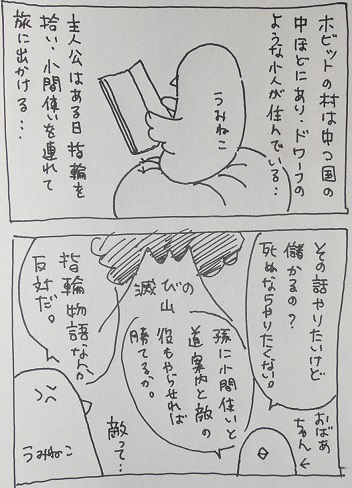 ホビットの村は中つ国の
中ほどにあり、ドワーフの
ような小人が住んでいる…
うみねこ
主人公はある日指輪を
拾い、小間使いを連れて
旅に出かける…
その話やりたいけど
儲かるの？
死ぬならやりたくない。
おばあ
ちゃん
←
滅びの
山
孫に小間使いと
道案内と敵の
役もやらせれば
勝てるか。
敵って…
指輪物語なんか
反対だ。
うみねこ